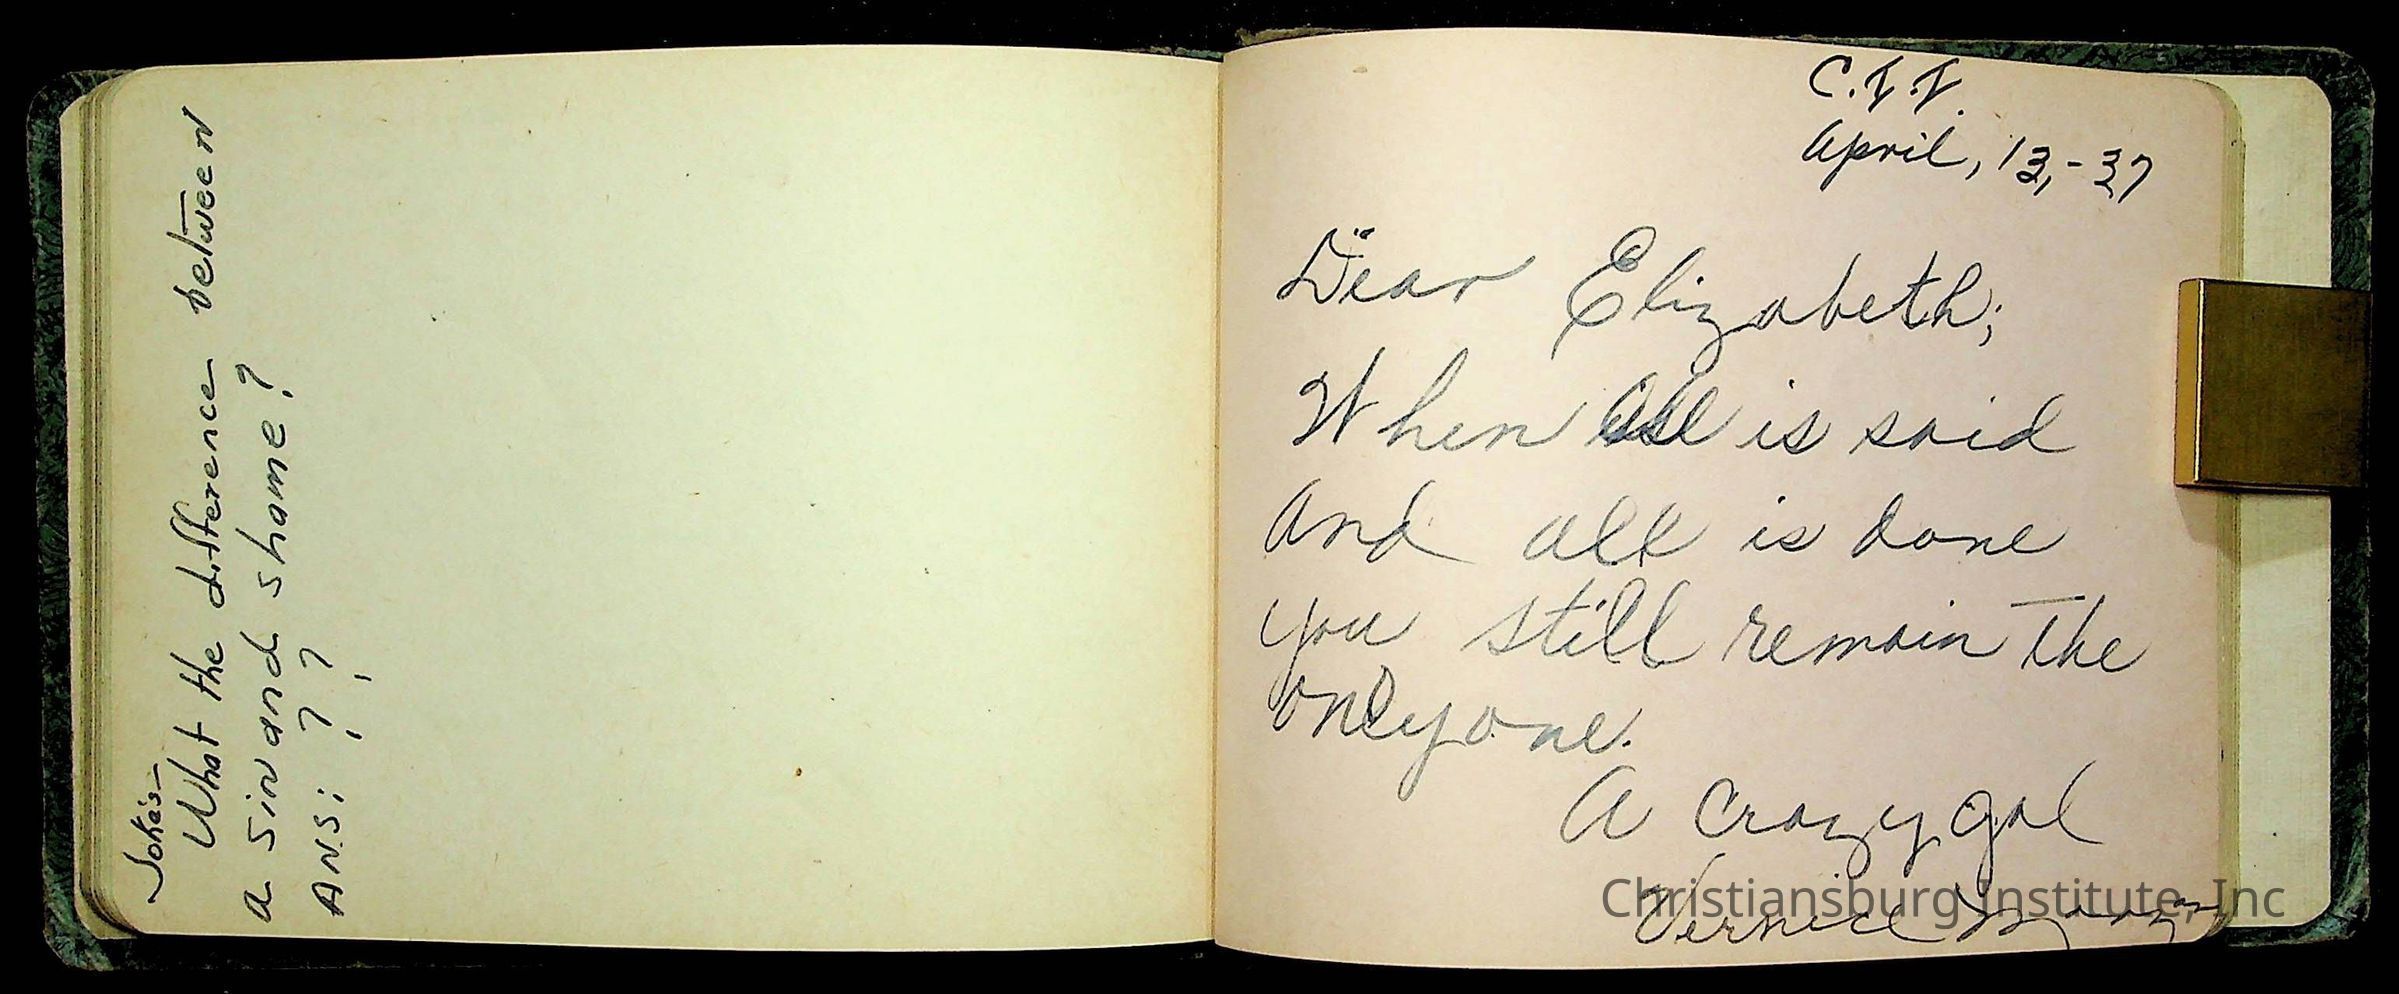 Jokes—
What the difference between
a sin and shame?
ANS: ? ?
C.I.I.
April, 13,-37
Dear Elizabeth;
When all is said
and all is done
you still remain the
only one.
A Crazy gal
Vernice
Christiansburg Institute, Inc